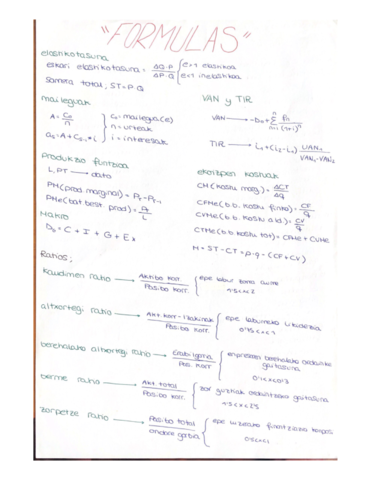 "FORMULAS"
elastikotasuna
eskari elastikotasuna = ΔQ·P / ΔP·Q { e>1 elastikoa
e<1 inelastikoa
Sarrera total; ST = P·Q
maileguak
A = C₀ / n
C₀ = mailegua (€)
n = urteak
i = interesak
VAN y TIR
VAN → -D₀ + Σ
TIR →
Produkzio funtzioa
L, PT → data
PM (prod marginal) =
PMe (bat best prod) = Pt / L
Makro
= C + I + G + Ex
ekoizpen kostuak
CM (kostu marg.) = ΔCT / ΔQ
CFMe (b.b. kostu finko) = CF / q
CVMe (b.b. kostu ald.) = CV / q
CTMe (b.b kostu tot) = CFMe + CVMe
M = ST - CT = p·q - (CF + CV)
Ratios;
kaudimen ratio → Aktibo korr. / Pasibo korr. { epe labur
altxortegi ratio → Akt. korr - Izakinak / Pasibo korr. { epe laburreko likidezia
berehalako altxortegi ratio → Erabilgarria / Pas. korr. { enpresaren berehalako ordaintze gaitasuna
berme ratio → Akt. total / Pasibo korr. { zor guztiak ordaintzeko gaitasuna
zorpetze ratio → Pasibo total / ondare garbia { epe luzerako